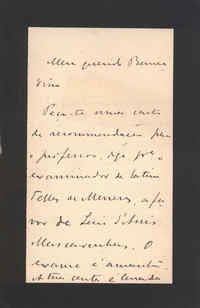 Meu querido Bernar
dino
Peço-te uma carta
de recommendação para
o professor, que
examinador de latim
Telles de Menezes, a fa-
vor de Luis d'Assis
Mascarenhas. O
exame é amanhã.
A tua carta é levada